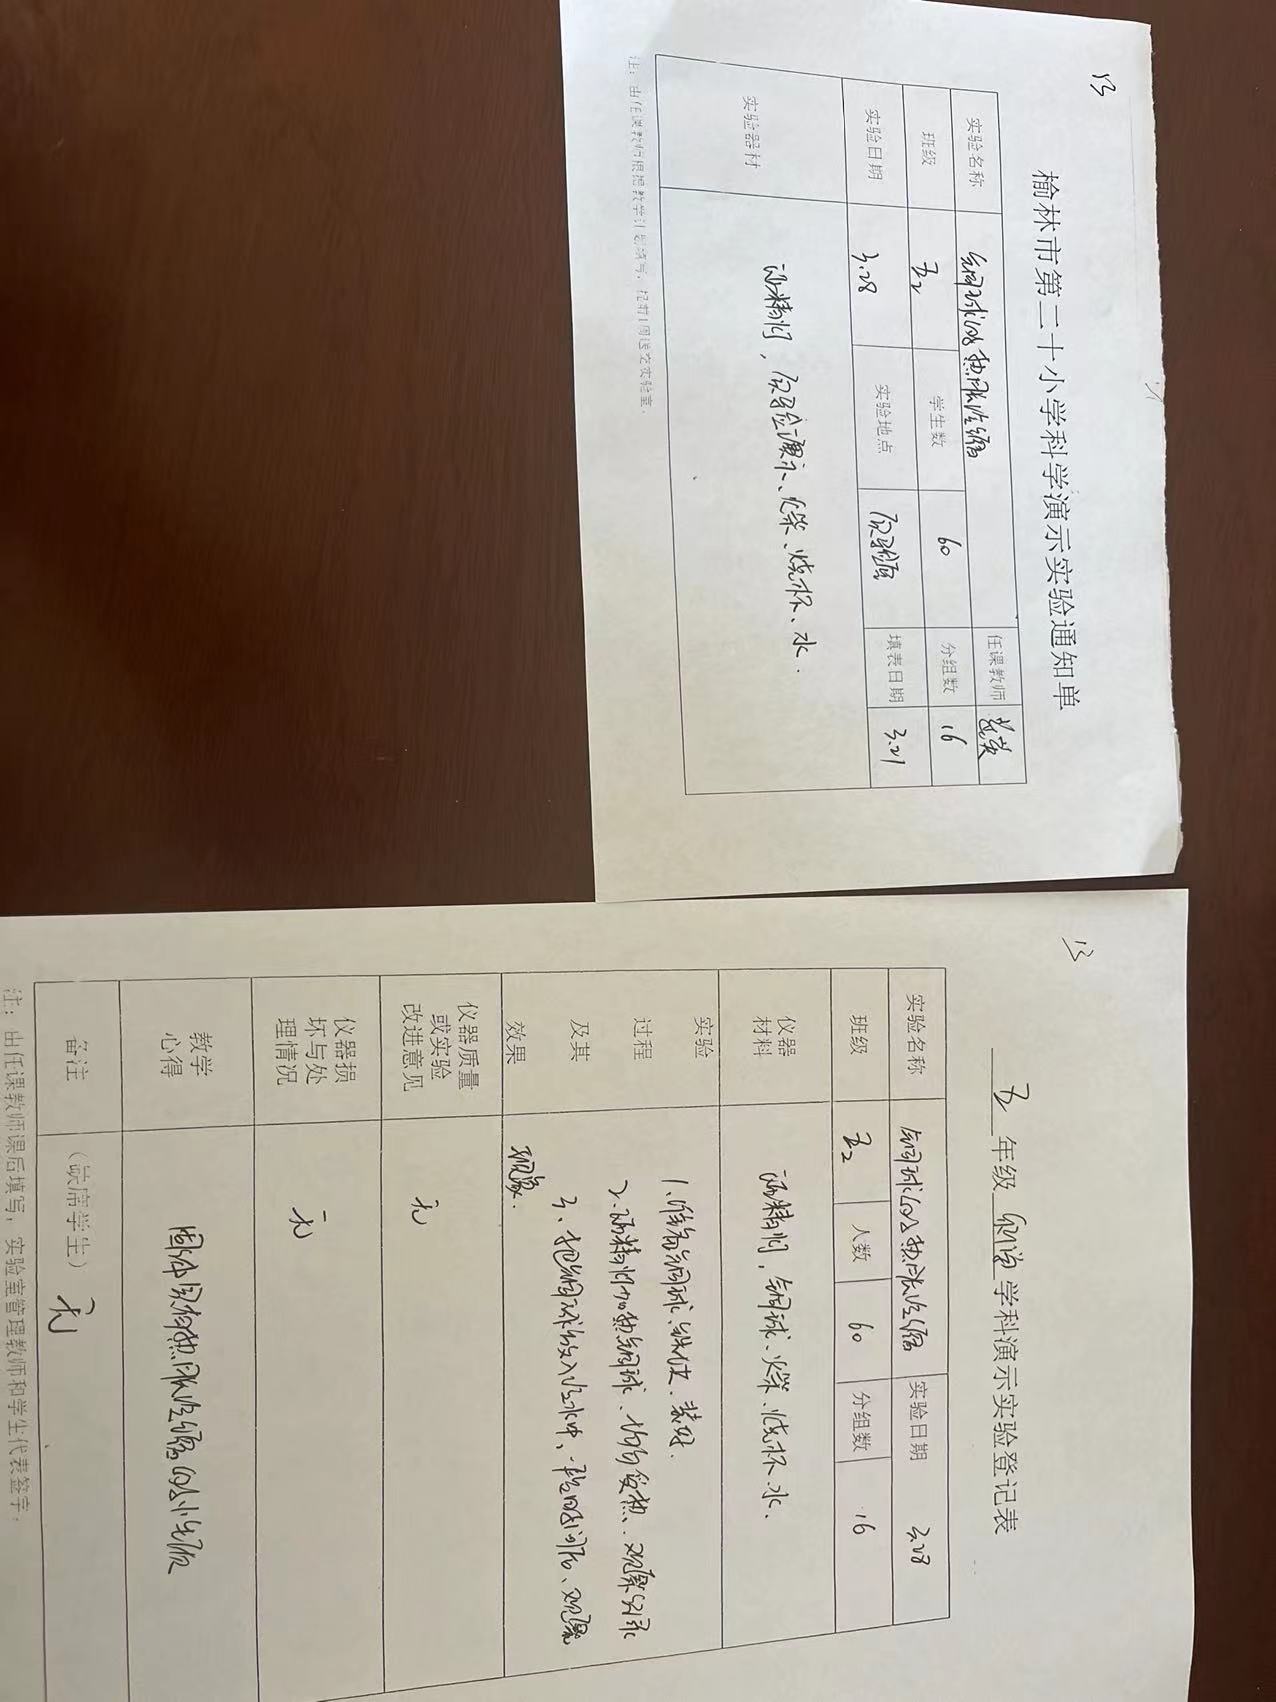 13
榆林市第二十小学科学演示实验通知单
实验名称 铜球的热胀冷缩 任课教师
班级 五2 学生数 60 分组数 16
实验日期 3.28 实验地点 实验室 填表日期 3.21
实验器材 酒精灯，实验演示、火柴、烧杯、水.
注：由任课教师根据教学计划填写，提前1周送交实验室.
13
五 年级 科学 学科演示实验登记表
实验名称 铜球的热胀冷缩 实验日期 3.28
班级 五2 人数 60 分组数 16
仪器材料 酒精灯，铜球、火柴、烧杯、水.
实验过程及其效果
1.准备铜球、铁仗、装好.
2.酒精灯加热铜球、均匀受热、观察记录
3、把铜球放入冷水中、一段时间后、观察
现象.
仪器质量或实验改进意见 无
仪器损坏与处理情况 无
教学心得 固体具有热胀冷缩的性质
备注 （缺席学生） 无
注：由任课教师课后填写，实验室管理教师和学生代表签字.